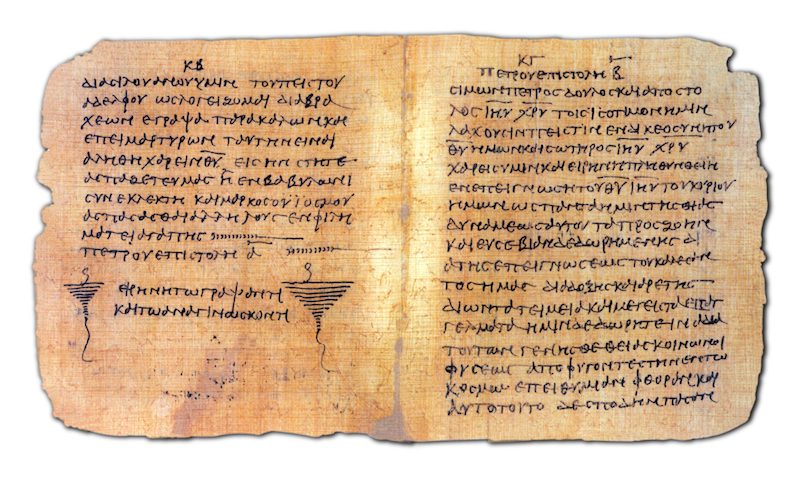 ΚΒ
δια σιλουανου υμιν του πειστου
αδελφου ως λογειζομαι δια βρα
χεων εγραψα παρακαλων και
επειμαρτυρων ταυτην ειναι
αληθη χαρειν θ̅υ̅ εις ην στητε
ασπαζετε υμας η εν βαβυλωνι
συνεκλεκτη και μαρκος ο υιος μου
ασπασασθαι αλληλους εν φιλη
ματει αγαπης
πετρου επιστολη α̅
ειρηνη τω γραψαντι
και τω αναγινωσκοντι
ΚΓ
πετρου επιστολη β̅
σιμων πετρος δουλος και αποστο
λος ι̅η̅υ̅ χ̅ρ̅υ̅ τοις ισοτιμον ημιν
λαχουσιν πειστιν εν δικεοσυνη του
θ̅υ̅ ημων και σωτηρος ι̅η̅υ̅ χ̅ρ̅υ̅
χαρεις υμιν και ειρηνη πληθυνθειη
εν επειγνωση του θ̅υ̅ ι̅η̅υ̅ του κυριου
ημων ως παντα ημιν της θιας
δυναμεως αυτου τα προς ζωην
και ευσεβιαν δεδωρημενης δι
α της επειγνωσεως του καλεσαν
τος ημας δια δοξης και αρετης
δι ων τα τειμεια και μεγειστα επαγ
γελματα ημιν δεδωρητε ινα δια
τουτων γενησθε θειας κοινωνοι
φυσεως αποφυγοντες την εν τω
κοσμω επειθυμιαν φθοραν και
αυτο τουτο δε σπουδην πασαν